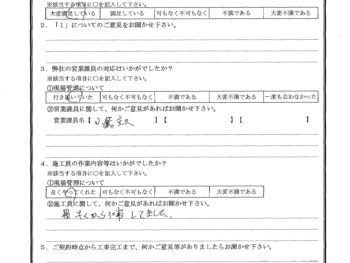 ※該当する項目に○を記入して下さい。
大変満足している 満足している 可もなく不可もなく 不満である 大変不満である
2.「1」についてのご意見をお聞かせ下さい。
3.弊社の営業職員の対応はいかがでしたか？
※該当する項目に○を記入して下さい。
①現場管理について
行き届いていた 可もなく不可もなく 不満である 大変不満である 一度も会わなかった
②営業職員に関して、何かご意見があればお聞かせ下さい。
営業職員名【 】 【 】【 】
4.施工員の作業内容等はいかがでしたか？
※該当する項目に○を記入して下さい。
①現場管理について
良くやってくれた 可もなく不可もなく 不満である 大変不満である
②施工員に関して、何かご意見があればお聞かせ下さい。
朝早くから してました。
5.ご契約時点から工事完工まで、何かご意見等がありましたらお聞かせ下さい。